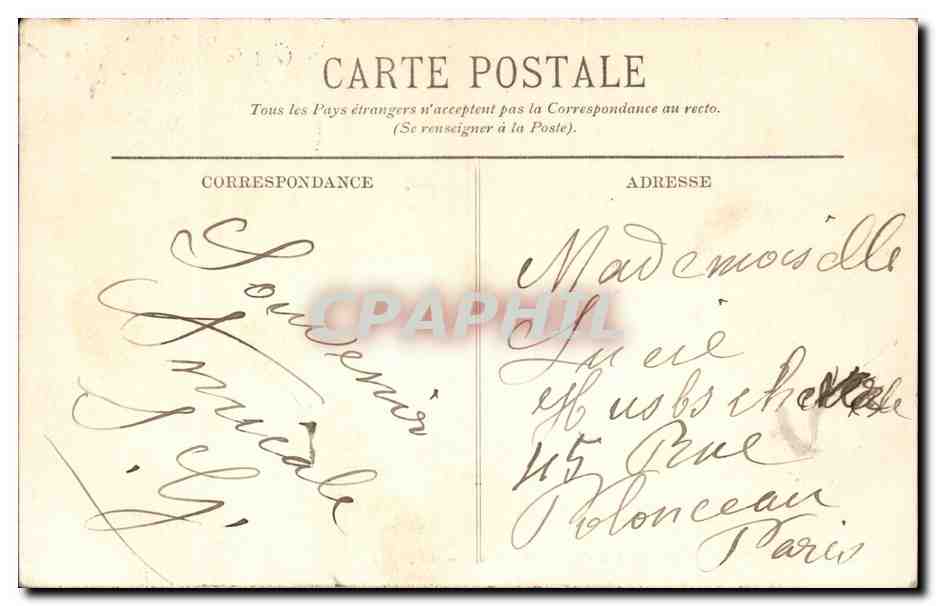 CARTE POSTALE
Tous les Pays étrangers n'acceptent pas la Correspondance au recto.
(Se renseigner à la Poste).
CORRESPONDANCE
ADRESSE
Souvenir
Amicale
Mademoiselle
Lucie
45 Rue
Polonceau
Paris
CPAPHIL